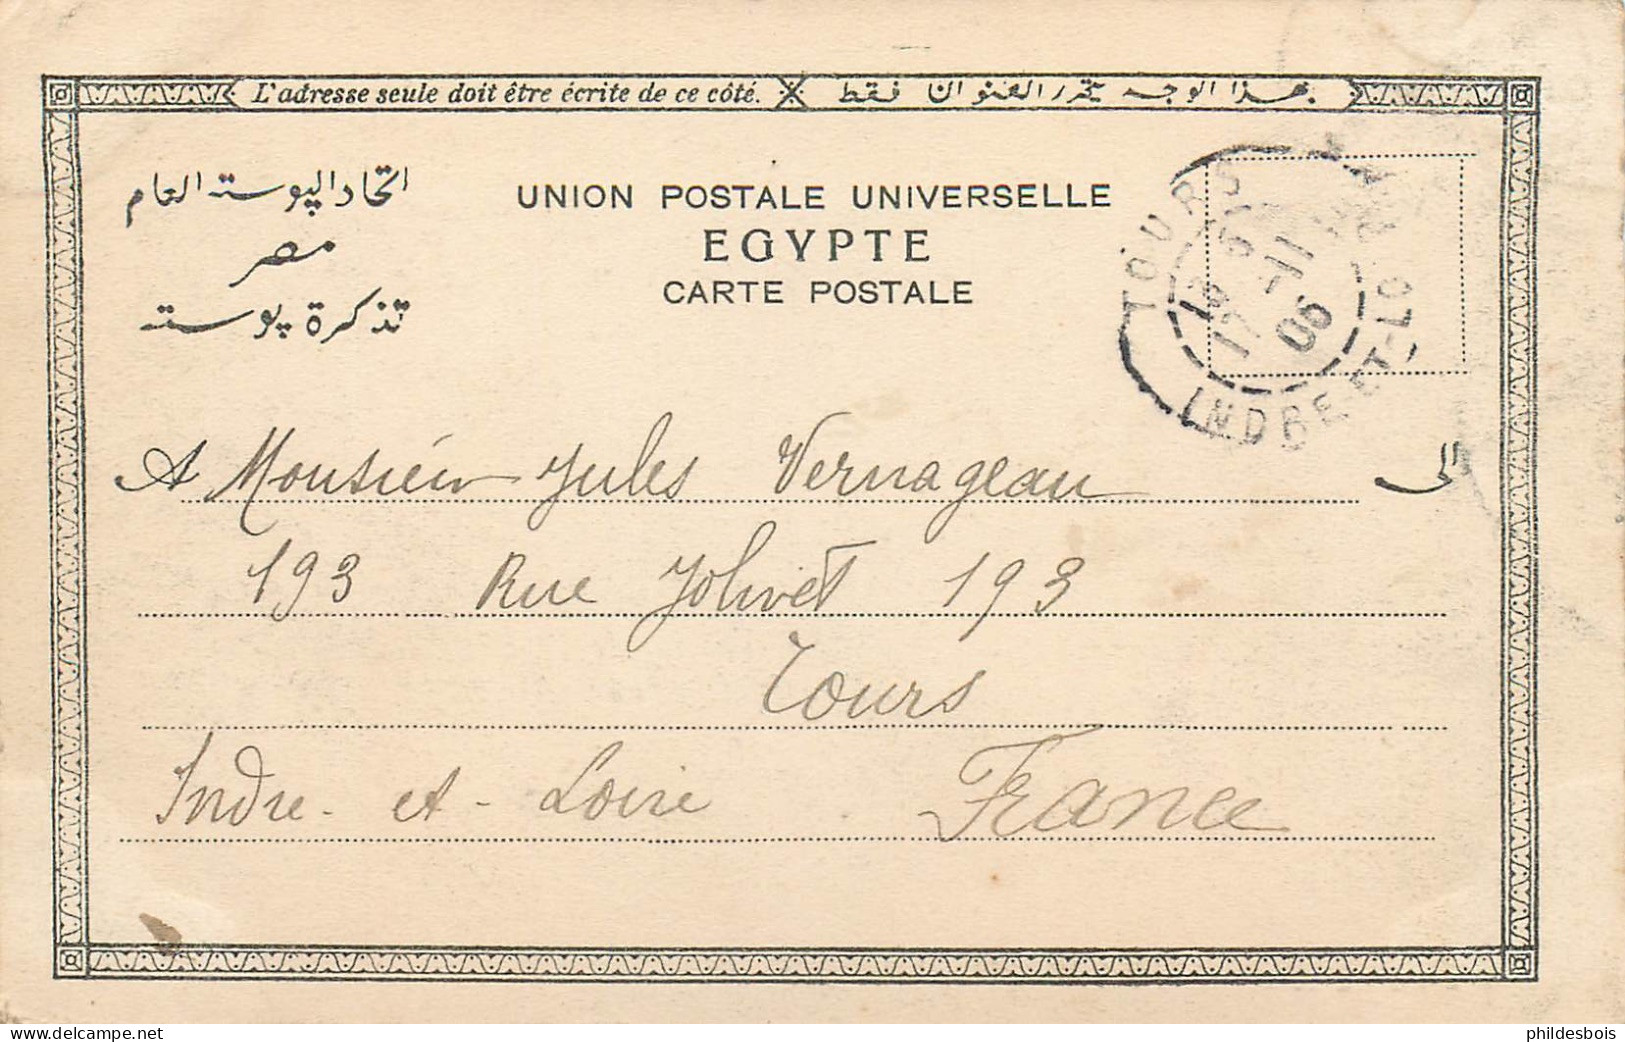 L'adresse seule doit être écrite de ce côté.
بهذا الوجه يتحرر العنوان فقط
اتحاد البوسته العام
مصر
تذكرة بوسته
UNION POSTALE UNIVERSELLE
EGYPTE
CARTE POSTALE
TOURS
INDRE-ET-LO
17 11
06
A Monsieur Jules Vernageau
الى
193 Rue Jolivet 193
Tours
Indre-et-Loire France
delcampe.net
phildesbois